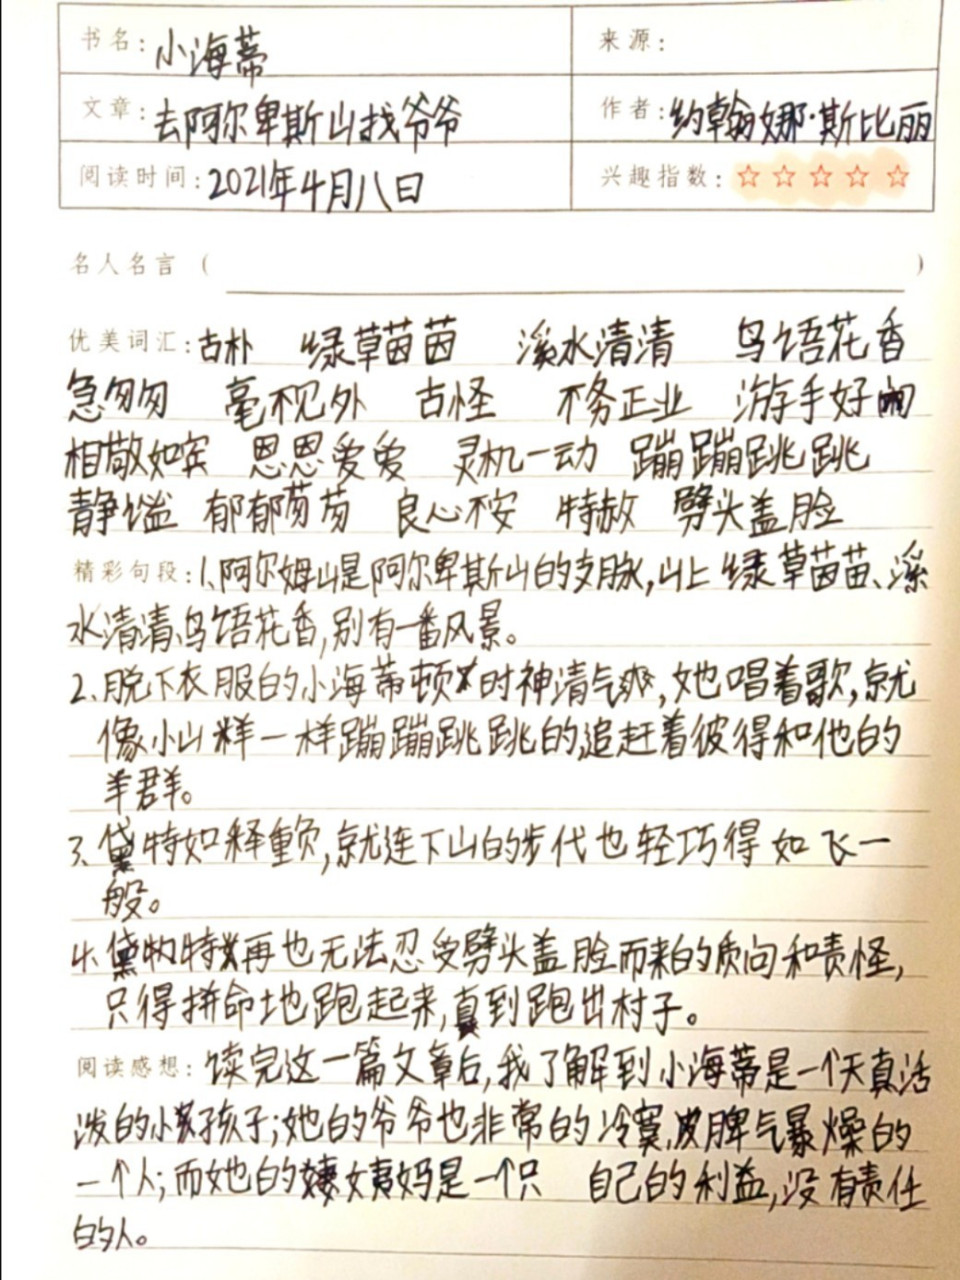 书名：小海蒂 来源：
文章：去阿尔卑斯山找爷爷 作者：约翰娜·斯比丽
阅读时间：2021年4月八日 兴趣指数：☆☆☆☆☆
名人名言（ ）
优美词汇：古朴 绿草茵茵 溪水清清 鸟语花香
急匆匆 毫不见外 古怪 不务正业 游手好闲
相敬如宾 恩恩爱爱 灵机一动 蹦蹦跳跳
静谧 郁郁芴芴 良心不安 特赦 劈头盖脸
精彩句段：1、阿尔姆山是阿尔卑斯山的支脉，山上绿草茵茵、溪
水清清、鸟语花香，别有一番风景。
2、脱下衣服的小海蒂顿时神清气爽，她唱着歌，就
像小山羊一样蹦蹦跳跳的，追赶着彼得和他的
羊群。
3、黛特如释重负，就连下山的步伐也轻巧得如飞一
般。
4、黛特再也无法忍受劈头盖脸而来的质问和责怪，
只得拼命地跑起来，直到跑出村子。
阅读感想：读完这一篇文章后，我了解到小海蒂是一个天真活
泼的小孩子；她的爷爷也非常的冷寞，脾气暴燥的
一个人；而她的姨妈是一个只 自己的利益，没有责任
的人。